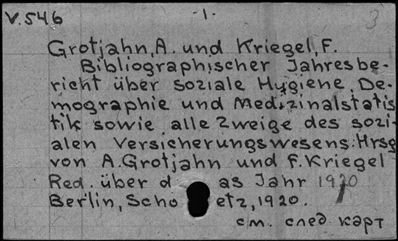 V.546 -1. 3
Grotjahn, A. und Kriegel, F.
Bibliographischer Jahresbe-
richt über soziale Hygiene, De-
mographie und Medizinalstatis
tik sowie alle Zweige des sozi-
alen Versicherungswesens. Hrsg
von A. Grotjahn und F. Kriegel
Red. über das Jahr 1910
Berlin, Schoetz, 1920.
см. след карт